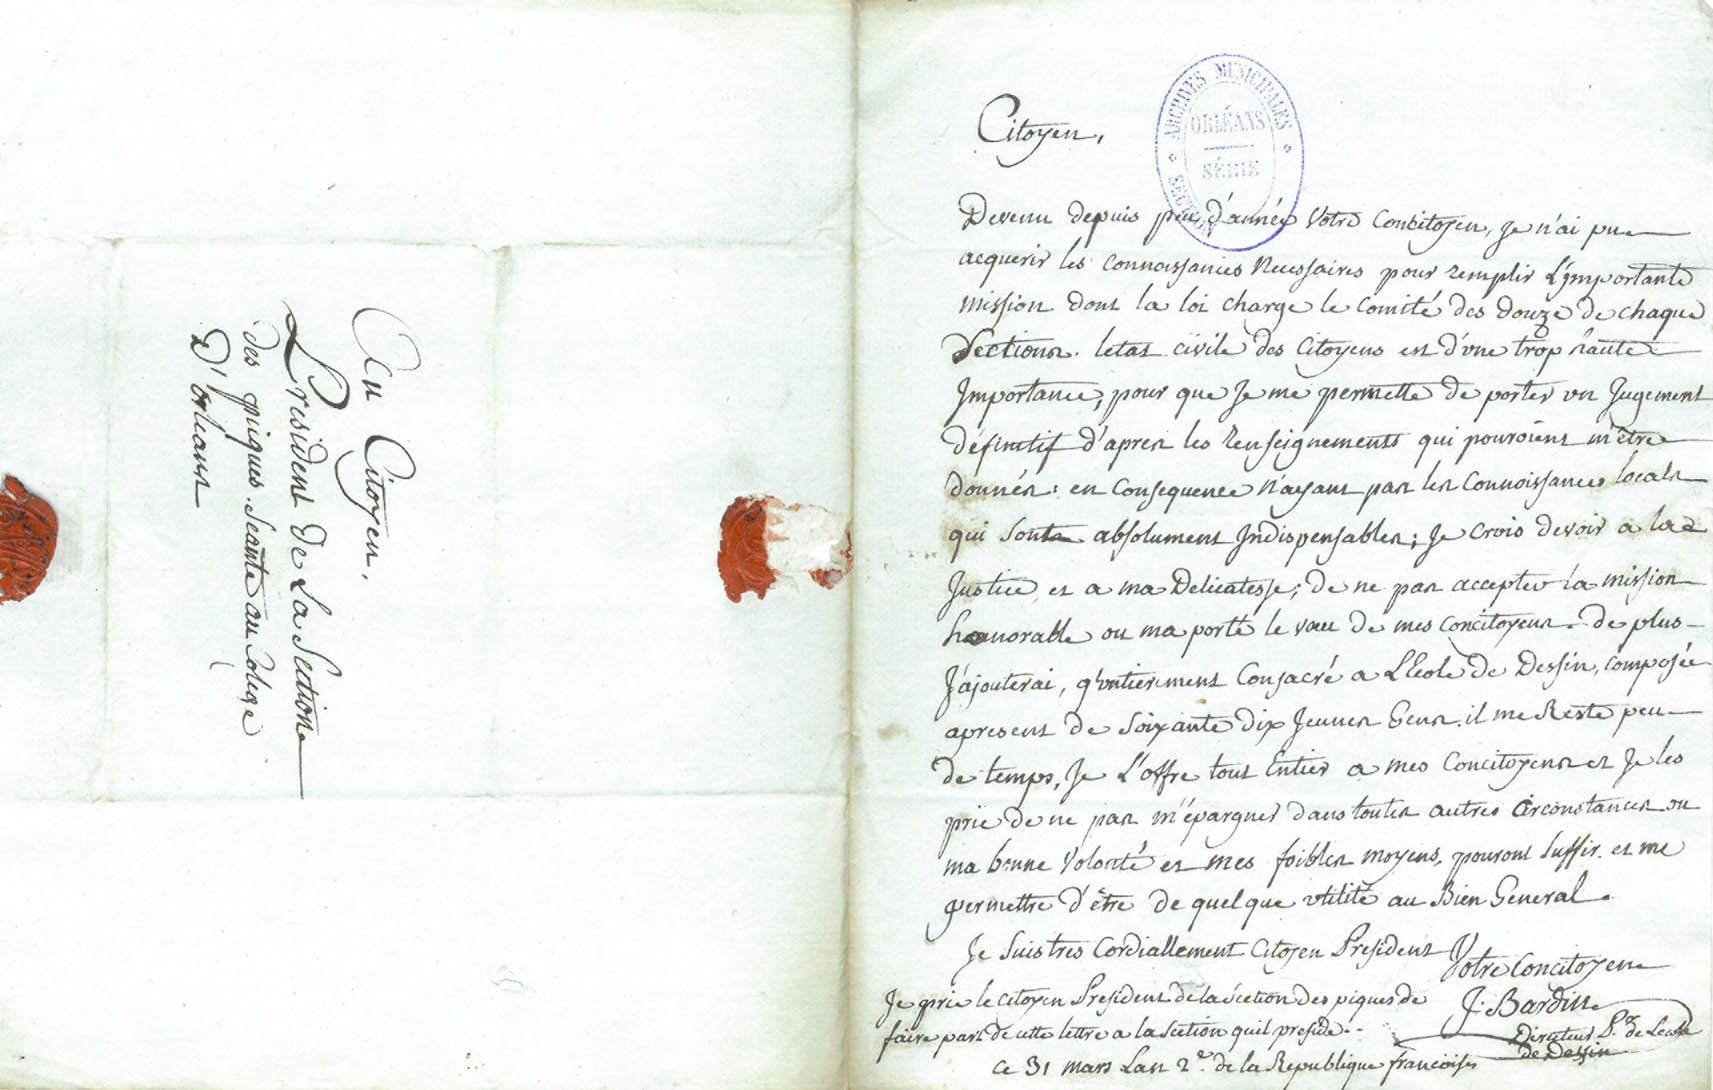 Au Citoyen,
President de La Section
des piques. Seante au Colege
D'orleans
ARCHIVES MUNICIPALES
ORLÉANS
SÉRIE
SECTION
Citoyen,
Devenu depuis peu d'année Votre Concitoyen, Je n'ai pu
acquerir les connoissances Necessaires pour remplir L'important
mission dont la loi charge le Comité des douze de chaque
Sections. letat civile des Citoyens est d'une trop haute
Importance, pour que Je me permette de porter un Jugement
définitif d'apres les renseignements qui pouroient m'être
donnés: en Consequence n'ayant pas les Connoissances locals
qui sont absolument Indispensables; Je crois devoir a la
Justice, et a ma Delicatesse; de ne pas accepter la mission
honorable ou ma porté le vœu de mes Concitoyens. de plus
J'ajouterai, q'entierement Consacré a L'Ecole de Dessin, composée
apresent de Soixante dix Jeunes Gens. il me Reste peu
de temps, Je L'offre tout Entier a mes Concitoyens et Je les
prie de ne pas m'épargner dans toutes autres Circonstances ou
ma bonne Volonté et mes foibles moyens, pouront suffir. et me
permettre d'être de quelque utilité au Bien General.
Je suis tres Cordiallement Citoyen President
Votre Concitoyen
J. Bardin
Directeur Pr. de Lecole
de Dessin
Je prie le Citoyen President de la section des piques de
faire part de cette lettre a la section quil preside.
ce 31 mars Lan 2e. de la Republique francoise